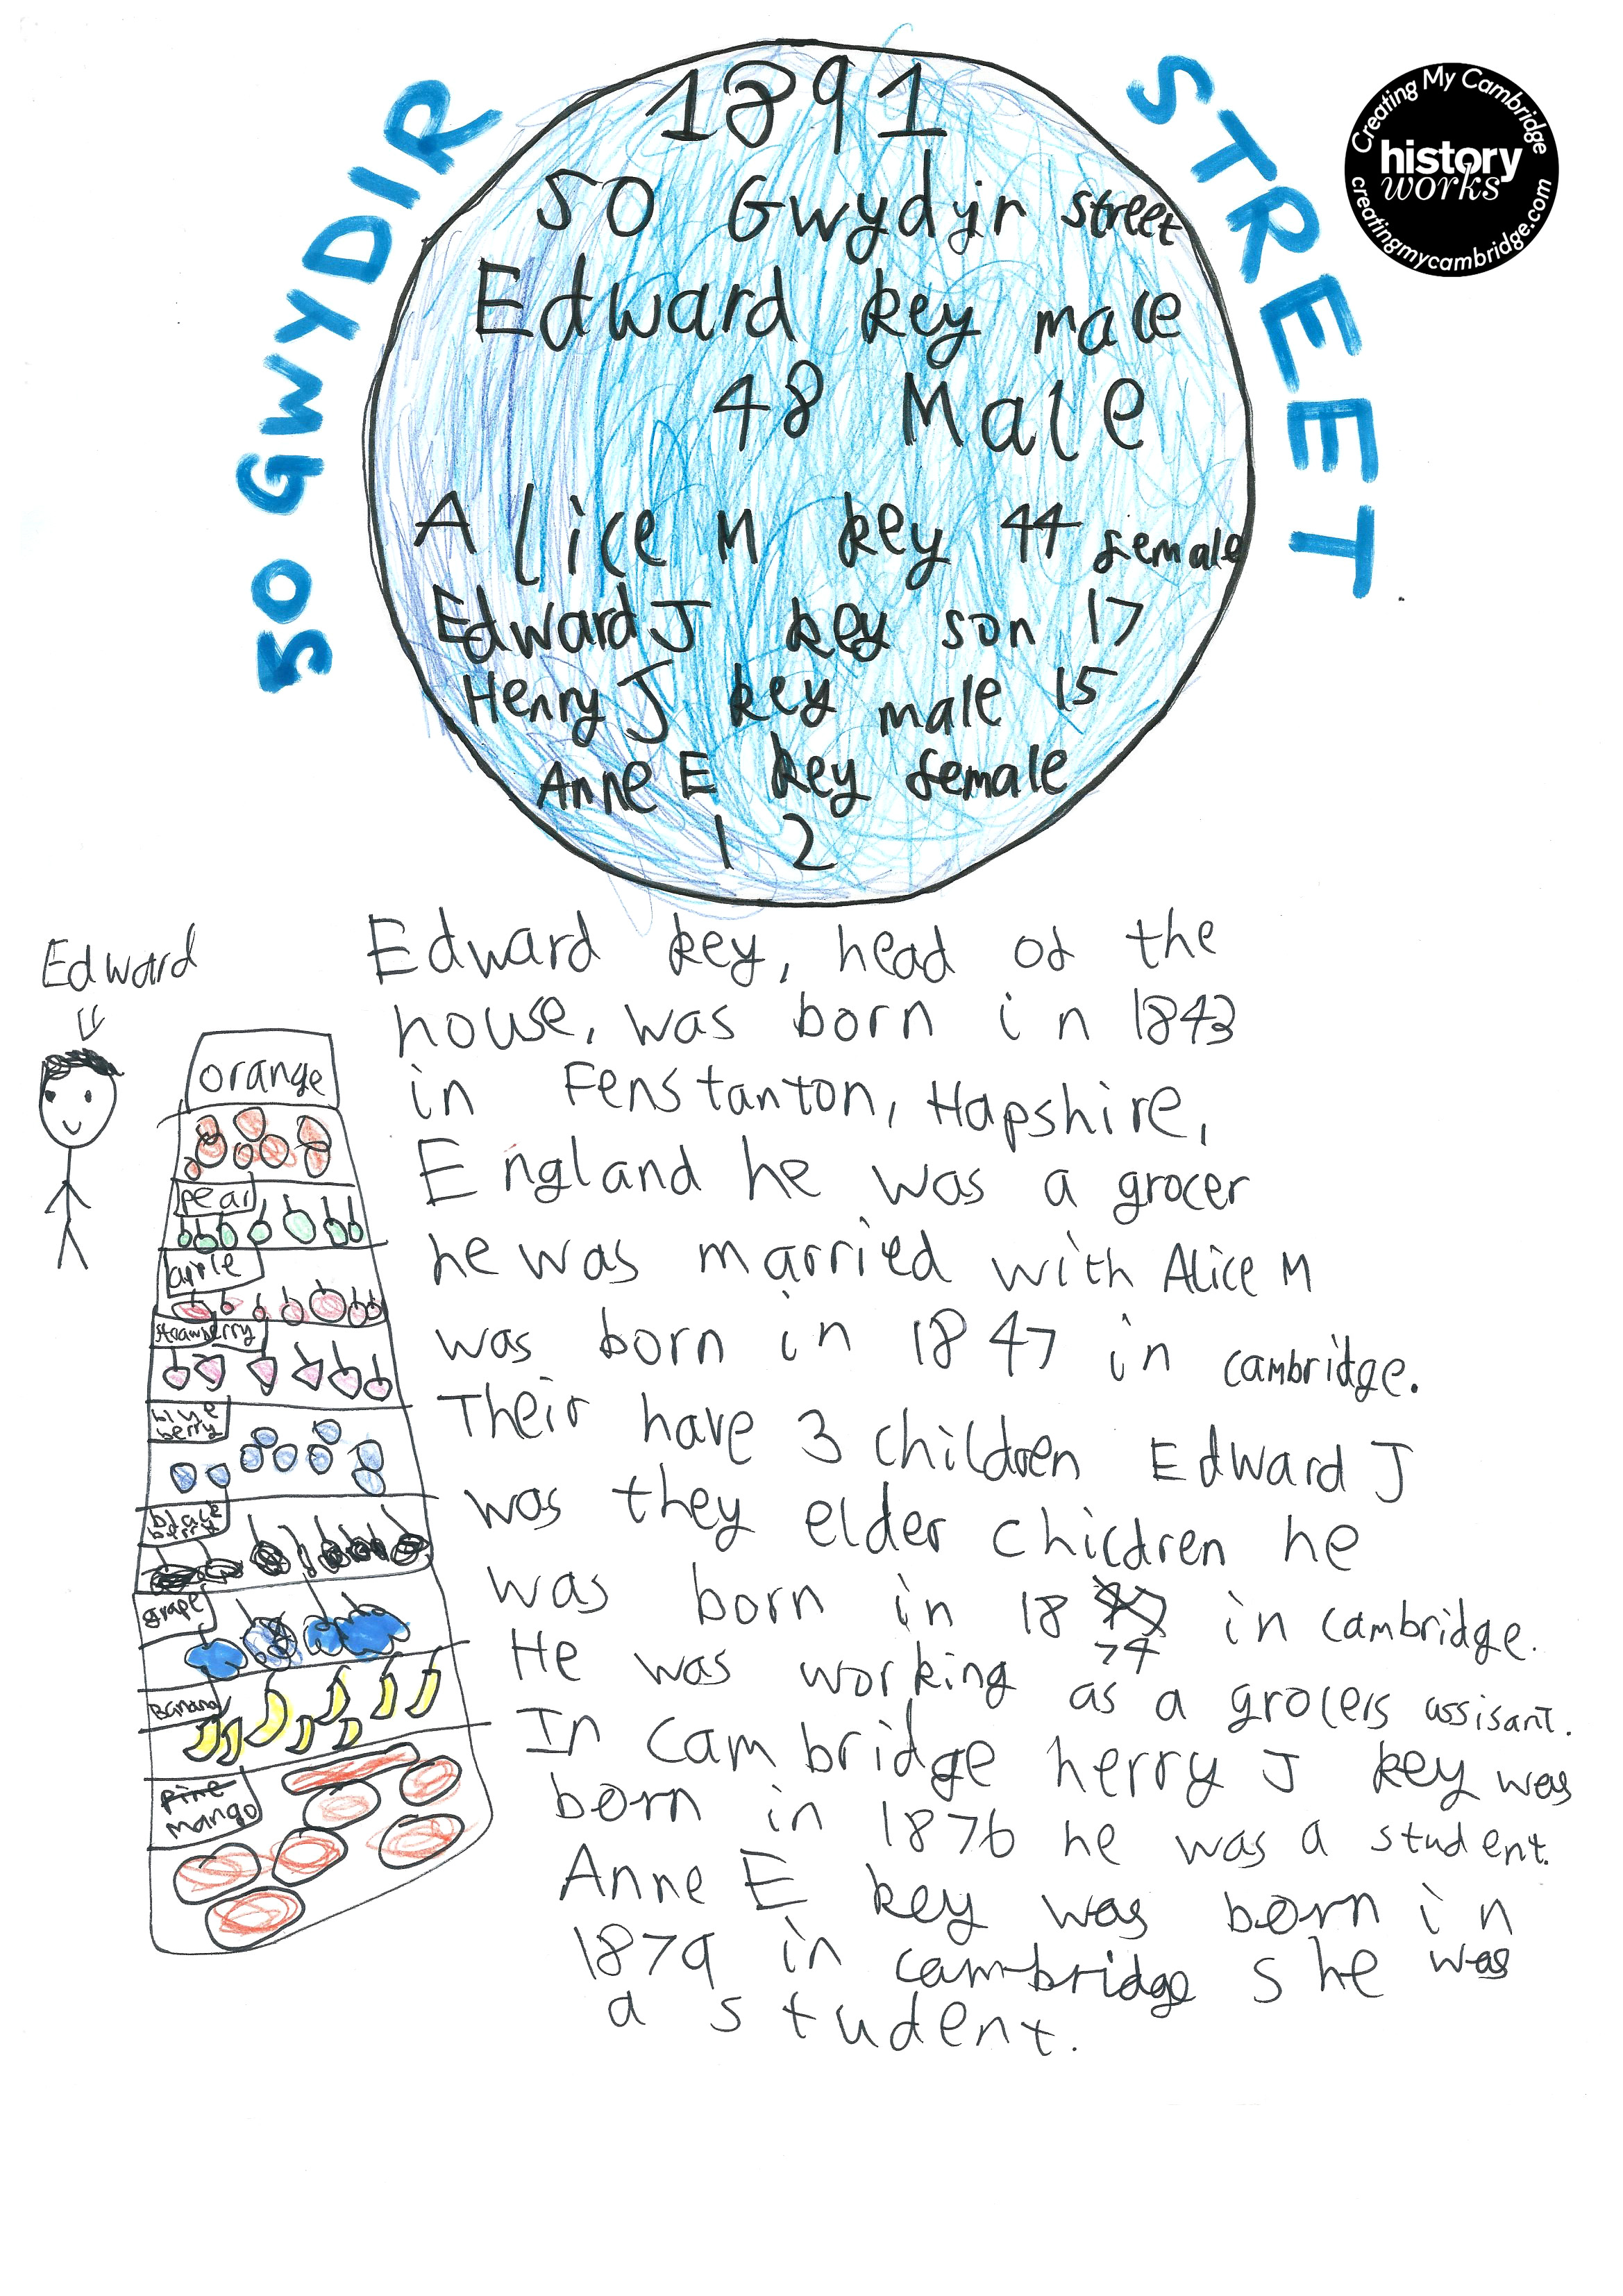 50 GWYDIR STREET
Creating My Cambridge
history
works
creatingmycambridge.com
1891
50 Gwydyr street
Edward key male
48 Male
Alice M key 44 female
Edward J key son 17
Henry J key male 15
Anne E key female
12
Edward
orange
pear
aple
strawberry
blue
berry
black
berry
grape
Banana
pine
mango
Edward key, head of the
house, was born in 1843
in Fenstanton, Hapshire,
England he was a grocer
he was married with Alice M
was born in 1847 in cambridge.
Their have 3 children Edward J
was they elder children he
was born in 18 74 in cambridge.
He was working as a grocers assisant.
In Cambridge herry J key was
born in 1876 he was a student.
Anne E key was born in
1879 in cambridge she was
a student.